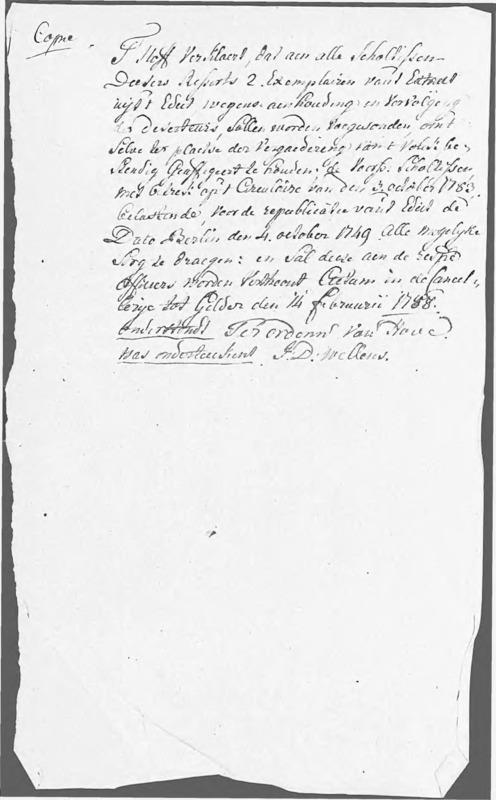 Copie
T' Hoff Verklaert, dat aen alle Scholtissen
Deeses Resorts 2 Exemplairen van't Extract
uijt 't Edict wegens aenhouding en vervolgung
der deserteurs, sullen worden toegesonden, om't
selve ter plaetse der Vergaedereng van't Volk be-
stendig Geaffigeert te houden; de Voorsz. Scholtissen
met Circulaire van den 3 october 1783
belastende voor de republicatie van't Edict de
Dato Berlin den 4. october 1749. Alle mogelyke
Sorg te draegen: en sal deese aen de
officiers worden Verthoont Actum in de Cancel-
lerye tot Gelder den 14 februarii 1788.
onderstondt Ter ordonn: Van Hove
was onderteekent J: D: Wellens.